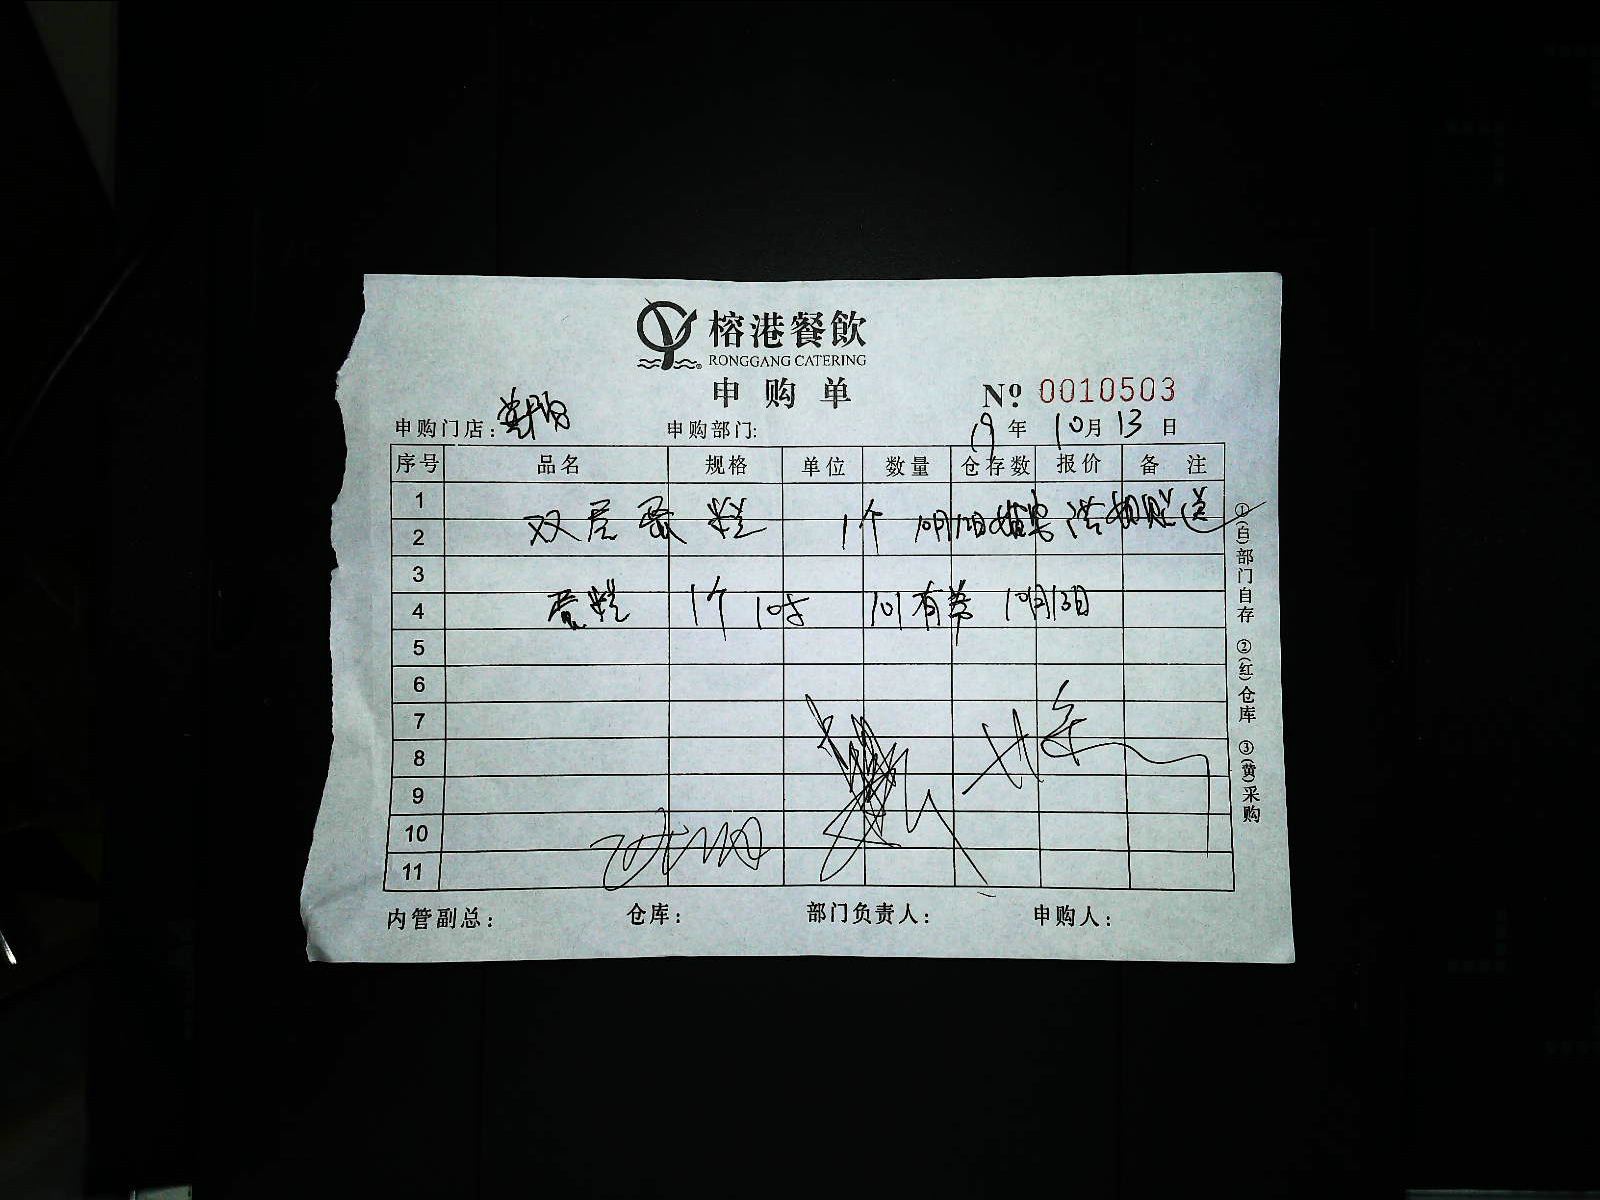 榕港餐飲
RONGGANG CATERING
申购单
№ 0010503
申购门店: 申购部门: 19年 10月 13日
序号 品名 规格 单位 数量 仓存数 报价 备注
1
2 双层蛋糕 1个 10月12日 赠送
3
4 蛋糕 1个 10寸 101有 10月13日
5
6
7
8
9
10
11
内管副总: 仓库: 部门负责人: 申购人:
①(白)部门自存 ②(红)仓库 ③(黄)采购